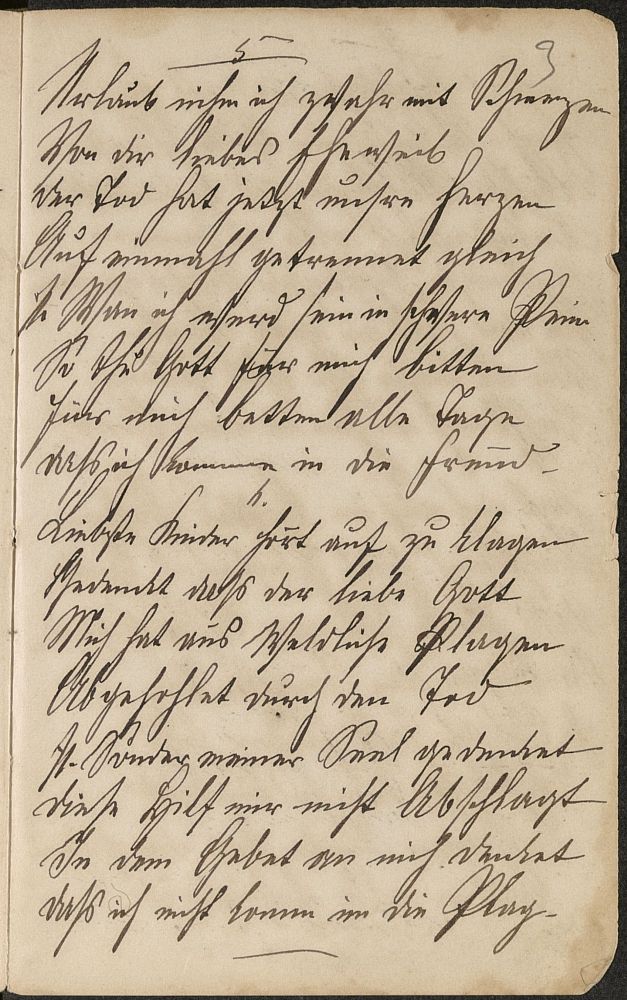 5
9
Urlaub nihm ich zwahr mit Schmerzen
Von dir liebes Eheweib
der Tod hat jetzt unsre Herzen
Auf einmahl getrennet gleich
Wan ich werd sein in schwere Pein
So thu Gott für mich bitten
für mich betten alle Tage
dass ich komme in die Freud
6.
Liebste Kinder hört auf zu klagen
Gedenckt dass der liebe Gott
Mich hat aus Weldliche Plagen
Abgehohlet durch den Tod
Sonder meiner Seel gedenket
diese Hilf mir nicht Abschlagt
In dem Gebet an mich denket
dass ich nicht komm in die Plag